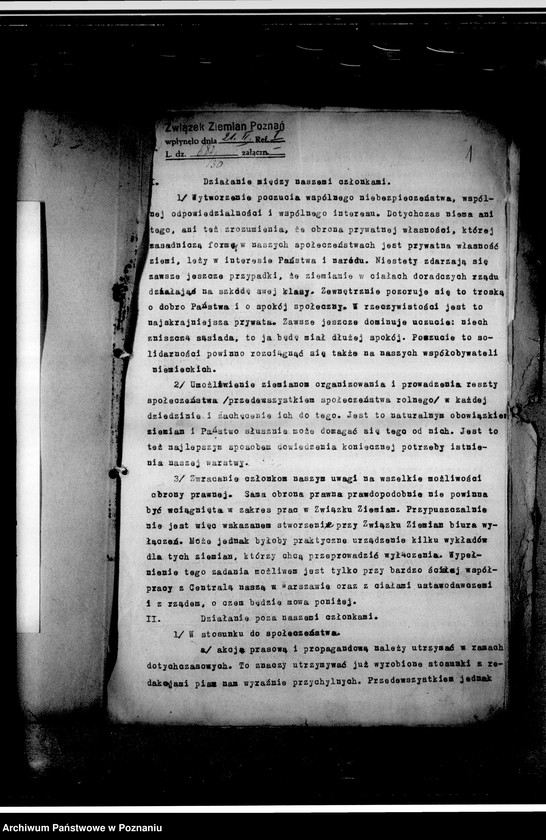 Związek Ziemian Poznań
wpłynęło dnia 21. II. Ref. I
L. dz. załączn. —
1
I. Działanie między naszemi członkami.
1/ Wytworzenie poczucia wspólnego niebezpieczeństwa, wspól-
nej odpowiedzialności i wspólnego interesu. Dotychczas niema ani
tego, ani też zrozumienia, że obrona prywatnej własności, której
zasadniczą formą w naszych społeczeństwach jest prywatna własność
ziemi, leży w interesie Państwa i narodu. Niestety zdarzają się
zawsze jeszcze przypadki, że ziemianie w ciałach doradczych rządu
działają na szkodę swej klasy. Zewnętrznie pozoruje się to troską
o dobro Państwa i o spokój społeczny. W rzeczywistości jest to
najskrajniejsza prywata. Zawsze jeszcze dominuje uczucie: niech
zniszczą sąsiada, to ja będę miał dłużej spokój. Poczucie to so-
lidarności powinno rozciągnąć się także na naszych współobywateli
niemieckich.
2/ Umożliwienie ziemianom organizowania i prowadzenia reszty
społeczeństwa /przedewszystkiem społeczeństwa rolnego/ w każdej
dziedzinie i zachęcenie ich do tego. Jest to naturalnym obowiązkiem
ziemian i Państwo słusznie może domagać się tego od nich. Jest to
też najlepszym sposobem dowiedzenia koniecznej potrzeby istnie-
nia naszej warstwy.
3/ Zwracanie członkom naszym uwagi na wszelkie możliwości
obrony prawnej. Sama obrona prawna prawdopodobnie nie powinna
być wciągnięta w zakres prac w Związku Ziemian. Przypuszczalnie
nie jest więc wskazanem stworzenie przy Związku Ziemian biura wy-
łączeń. Może jednak byłoby praktyczne urządzenie kilku wykładów
dla tych ziemian, którzy chcą przeprowadzić wyłączenia. Wypeł-
nienie tego zadania możliwem jest tylko przy bardzo ścisłej współ-
pracy z Centralą naszą w Warszawie oraz z ciałami ustawodawczemi
i z rządem, o czem będzie mowa poniżej.
II. Działanie poza naszemi członkami.
1/ W stosunku do społeczeństwa.
a/ akcję prasową i propagandową należy utrzymać w ramach
dotychczasowych. To znaczy utrzymywać już wyrobione stosunki z re-
dakcjami pism nam wyraźnie przychylnych. Przedewszystkiem jednak
Archiwum Państwowe w Poznaniu